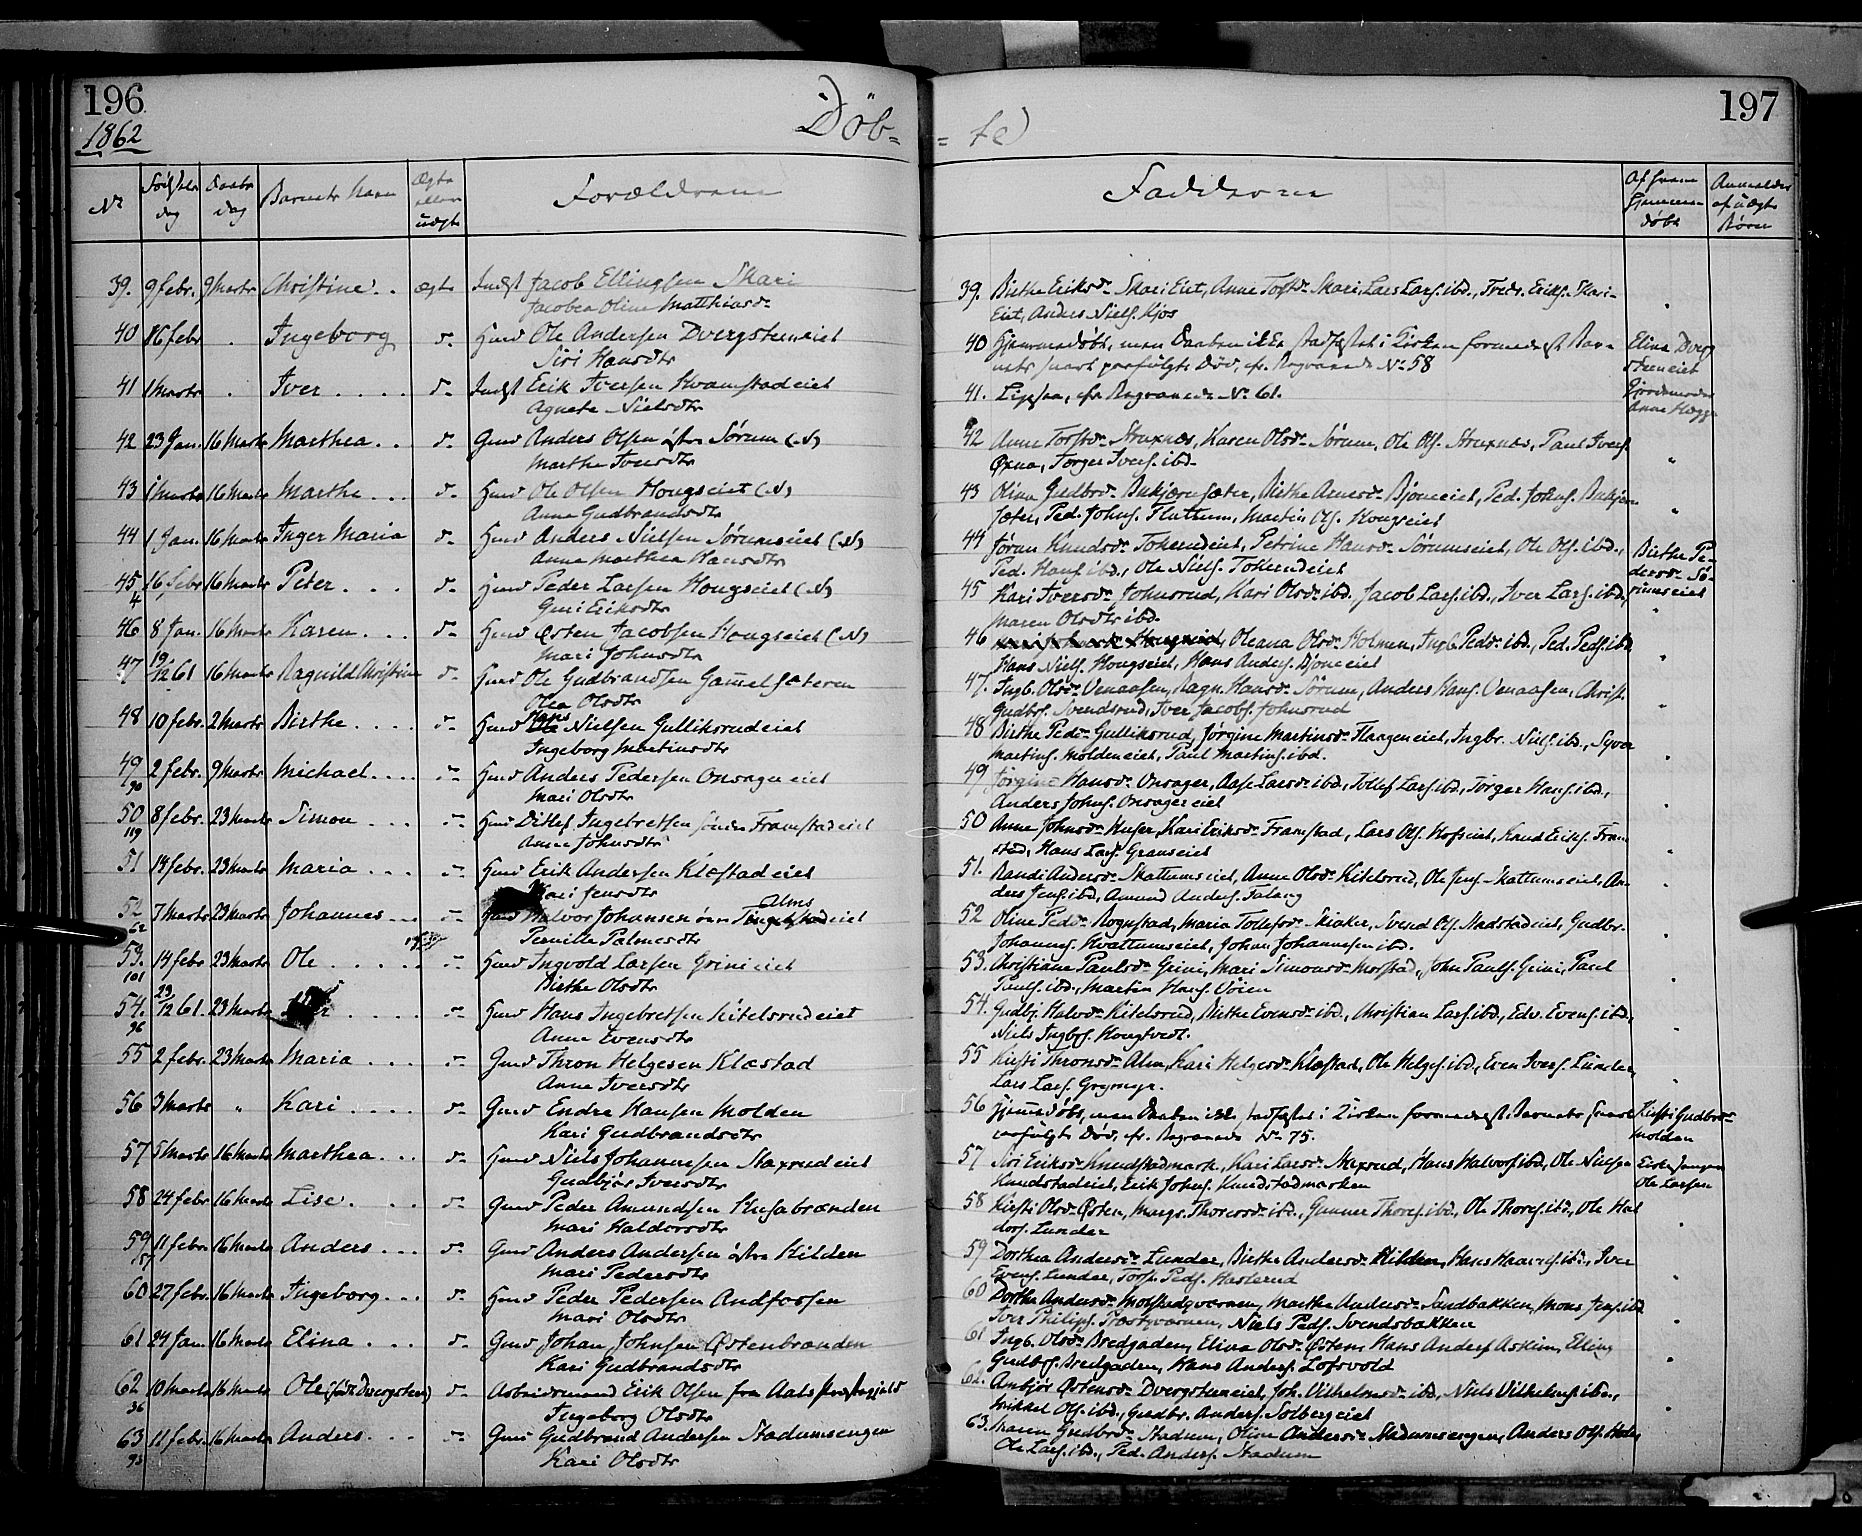 196
1862
Döb-
Nr
Fødsels dag
Daabs dag
Barnets Navn
Ægte eller uægte
Forældrene
39. 9 febr. 9 Marts Christine . . ægte Indst Jacob Ellingsen Skari
Jacobea Oline Matthiasdr
40 16 febr . Ingeborg do Huusd Ole Andersen Dvergsteneiet
Siri Hansdtr
41 1 Marts . Iver . . . . do Indst Erik Iversen Hvamstadeiet
Agnete Nielsdtr
42 23 Jan. 16 Marts Marthea . . do Gmd Anders Olsen østre Sørum (N)
Marthe Iversdtr
43 1 Marts 16 Marts Marthe . . . do Huusd Ole Olsen Hougseiet (N)
Anne Gudbrandsdtr
44 1 Jan. 16 Marts Inger Maria do Huusd Anders Nielsen Sørumseiet (N)
Anne Marthea Hansdtr
45 16 febr 16 Marts Peter . . . do Huusd Peder Larsen Hougseiet (N)
4 Guri Eriksdtr
46 8 Jan. 16 Marts Karen . . . do Huusd Østen Jacobsen Hougseiet (N)
Mari Johnsdtr
47 19/12 61 16 Marts Ragnild Christine do Huusd Ole Gudbrandsen Gamelsæteren
Olea Olsdtr
48 10 febr. 2 Marts Birthe . . . . do Huusd Hans Nielsen Gulliksrudeiet
Ingeborg Martinsdtr
49 2 febr. 9 Marts Michael . . . . do Huusd Anders Pedersen Onsagereiet
90 Mari Olsdtr
50 8 febr. 23 Marts Simon . . . do Huusd Ditlef Ingebretsen søndre Framstadeiet
119 Anne Johnsdtr
51 14 febr. 23 Marts Maria . . . do Huusd Erik Andersen Klæstadeiet
Kari Jensdtr
52 7 Marts 23 Marts Johannes . . . do Huusd Halvor Johansen Alms eiet
62 Pernille Palmesdtr
53. 14 febr 23 Marts Ole . . . . . do Huusd Ingvold Larsen Grinieiet
101 Birthe Olsdtr
54. 23/12 61. 23 Marts . . . . do Huusd Hans Ingebretsen Kitelsrudeiet
96 Anne Evensdtr
55 2 febr. 23 Marts Maria . . . do Gmd Thron Helgesen Klæstad
Anne Iversdtr
56 3 Marts " Kari . . . . do Gmd Endre Hansen Molden
Kari Gudbrandsdtr
57 5 Marts 16 Marts Marthea . . . do Huusd Niels Johannesen Staxrudeiet
Gudbjør Iversdtr
58 24 febr 16 Marts Lise . . . . do Gmd Peder Amundsen Husabrænden
Mari Haldorsdtr
59 11 febr. 16 Marts Anders . . . do Gmd Anders Andersen østre Hilden
Mari Pedersdtr
60 27 febr. 16 Marts Ingeborg . . . do Huusd Peder Pedersen Andfossen
Mari Olsdtr
61 24 Jan. 16 Marts Elina . . . do Gmd Johan Johnsen Østenbrænden
Kari Gudbrandsdtr
62 10 Marts 16 Marts Ole (født Dvergsten) do Arbeidsmand Erik Olsen fra Aals Præstegjeld
36 Ingeborg Olsdtr
63 11 febr. 16 Marts Anders . . . do Gmd Gudbrand Andersen Stadumsengen
93 Kari Olsdtr
197
- te
Fadderne
Af hvem hjemmedøbt
Anmelder af uægte Børn
39. Birthe Eriksdr Skari Eiet, Anne Tostdr Skari, Lars Lars. ibd., Fredr. Eriks. Skari-
Eiet, Anders Niels. Kjos
40 Hjemmedøbt, men Daaben ikke stadfæstet i Kirken formedelst Bar-
nets snart paafulgte Død, cfr. Begravede No 58
Elina Dvergsteneiet
41. Ligesaa, cfr. Begravede No 61.
Gjordemoder Anne Hegge
42 Anne Torstdr Struxnæs, Karen Olsdr Sørum, Ole Ols. Struxnæs, Paul Ivers.
Øxna, Torger Ivers. ibd.
43 Olina Gudbrdr Bukjernsæter, Birthe Arnesdr Bjoneeiet, Ped. Johns. Bukjern-
sæter, Ped. Johns. Flattum, Martin Ols. Hougseiet
44 Jøran Knudsdr Tokerudeiet, Petrine Hansdr Sørumseiet, Ole Ols. ibd.,
Ped. Hans. ibd., Ole Niels. Tokerudeiet
Birthe Pedersdr Sørumseiet
45 Kari Iversdr Johnsrud, Kari Olsdr ibd. Jacob Lars. ibd., Iver Lars. ibd.,
Maren Olsdtr ibd.
46 Oleana Olsdr Holmen, Ingb. Pedsdr ibd., Ped. Peds. ibd.
Hans Niels. Hougseiet, Hans Anders. Bjoneeiet
47. Ingb. Olsdr Venaasen, Ragn. Hansdr Sørum, Anders Hans. Venaasen, Christ.
Gudbrs. Svendsrud, Iver Jacobs. Johnsrud
48 Birthe Pedsdr Gulliksrud, Jørgine Martinsdr Haageneiet, Ingbr. Niels. ibd., Syver
Martins. Moldeneiet, Paul Martins. ibd.
49 Jørgine Hansdr Onsager, Aase Larsdr ibd., Tollef Lars. ibd., Torger Hans. ibd.,
Anders Johns. Onsagereiet
50 Anne Johnsdr Huser, Kari Eriksdr Framstad, Lars Ols. Hofseiet, Knud Eriks. Fram-
stad, Hans Lars. Granseiet
51. Randi Andersdr Skattumseiet, Anne Olsdr Kitelsrud, Ole Jens. Skattumseiet, An-
ders Jens. ibd., Amund Anders. Falang
52 Oline Pedsdr Rognstad, Maria Tollefsdr Skiaker, Svend Ols. Stadstadeiet, Gudbr.
Johannes. Hvattumseiet, Johan Johannesen ibd.
53. Christiane Paulsdr Grini, Mari Simonsdr Morstad, John Pauls. Grini, Paul
Pauls. ibd., Martin Hans. Vøien
54. Gudbj. Halvdr Kitelsrud, Birthe Evensdr ibd., Christian Lars. ibd., Edv. Evens. ibd.,
Niels Ingbrs. Hougtvedt.
55 Kirsti Thronsdr Alm, Kari Helgesdr Klæstad, Ole Helges. ibd., Even Ivers. Lunder,
Lars Lars. Grymyr.
56 Hjemmedøbt, men Daaben ikke stadfæstet i Kirken formedelst Barnets snart
paafulgte Død, cfr. Begravede No 75.
Kirsti Gudbrdr Molden
57 Siri Eriksdr Knudstadmark, Kari Larsdr Staxrud, Hans Halvors. ibd., Ole Nielsen
Knudstadeiet, Erik Johns. Knudstadmarken
Kirkesanger Ole Larsen
58 Kirsti Olsdr Østen, Margr. Thoresdr ibd., Gunner Thores. ibd., Ole Thores. ibd., Ole Hal-
dors. Lunder
59 Dorthea Andersdr Lunder, Birthe Andersdr Hilden, Hans Haavels. ibd., Iver
Evens. Lunder, Torst. Peds. Haslerud
60 Dorthe Andersdr Molstadqværnen, Marthe Andersdr Sandbakken, Mons Jens. ibd.
Iver Philips. Præstqværnen, Niels Peds. Svendsbakken
61 Ingb. Olsdr Bredgaden, Elina Olsdr Østen, Hans Anders. Askim, Elling
Gudbrs. Bredgaden, Hans Anders. Lofsvold
62. Ambjør Østensdr Dvergsteneiet, Joh. Vilhelmsdr ibd., Niels Vilhelms. ibd.,
Mikkel Ols. ibd., Gudbr. Anders. Solbergeiet
63. Maren Gudbrdr Stadum, Oline Andersdr Stadumsengen, Anders Ols. Helm
Ole Lars. ibd., Ped. Anders. Stadum